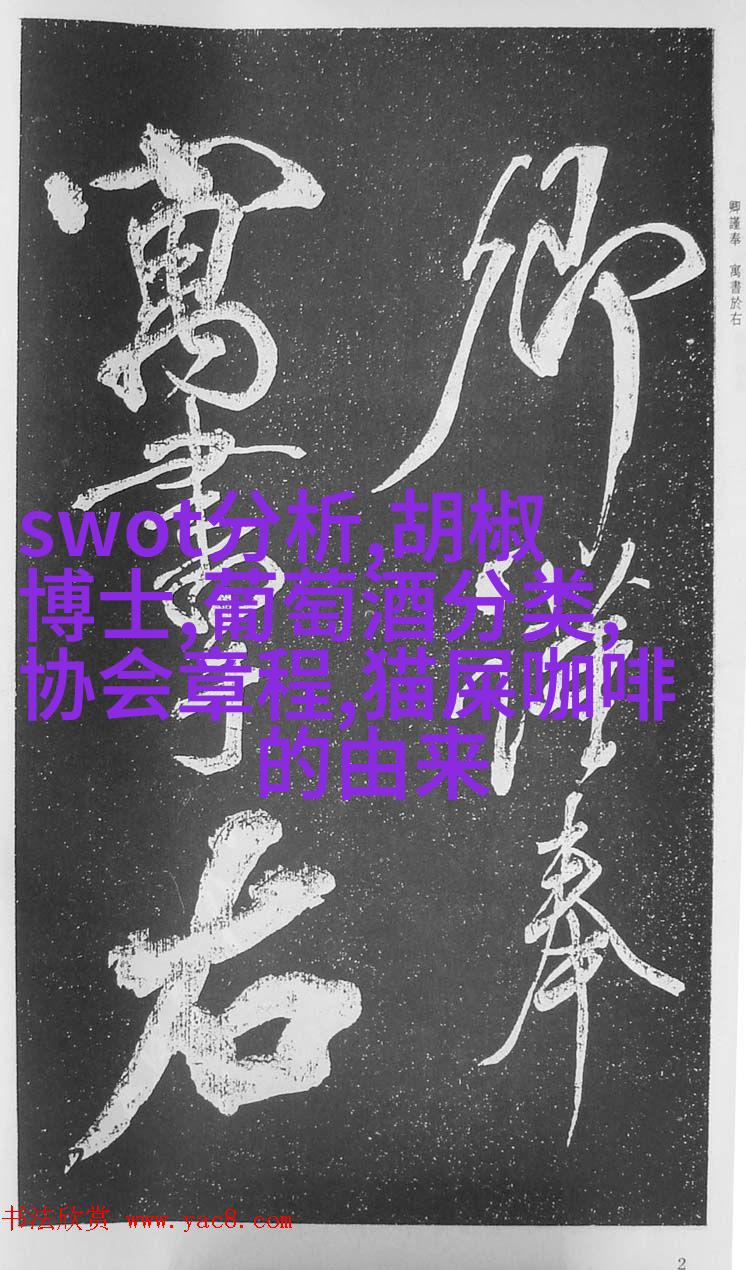 卿謹奉
寓書於右
卿謹奉 寓書於右
swot分析,胡椒
博士,葡萄酒分类,
协会章程,猫屎咖啡
的由来
书法欣赏 www.yac8.com
2